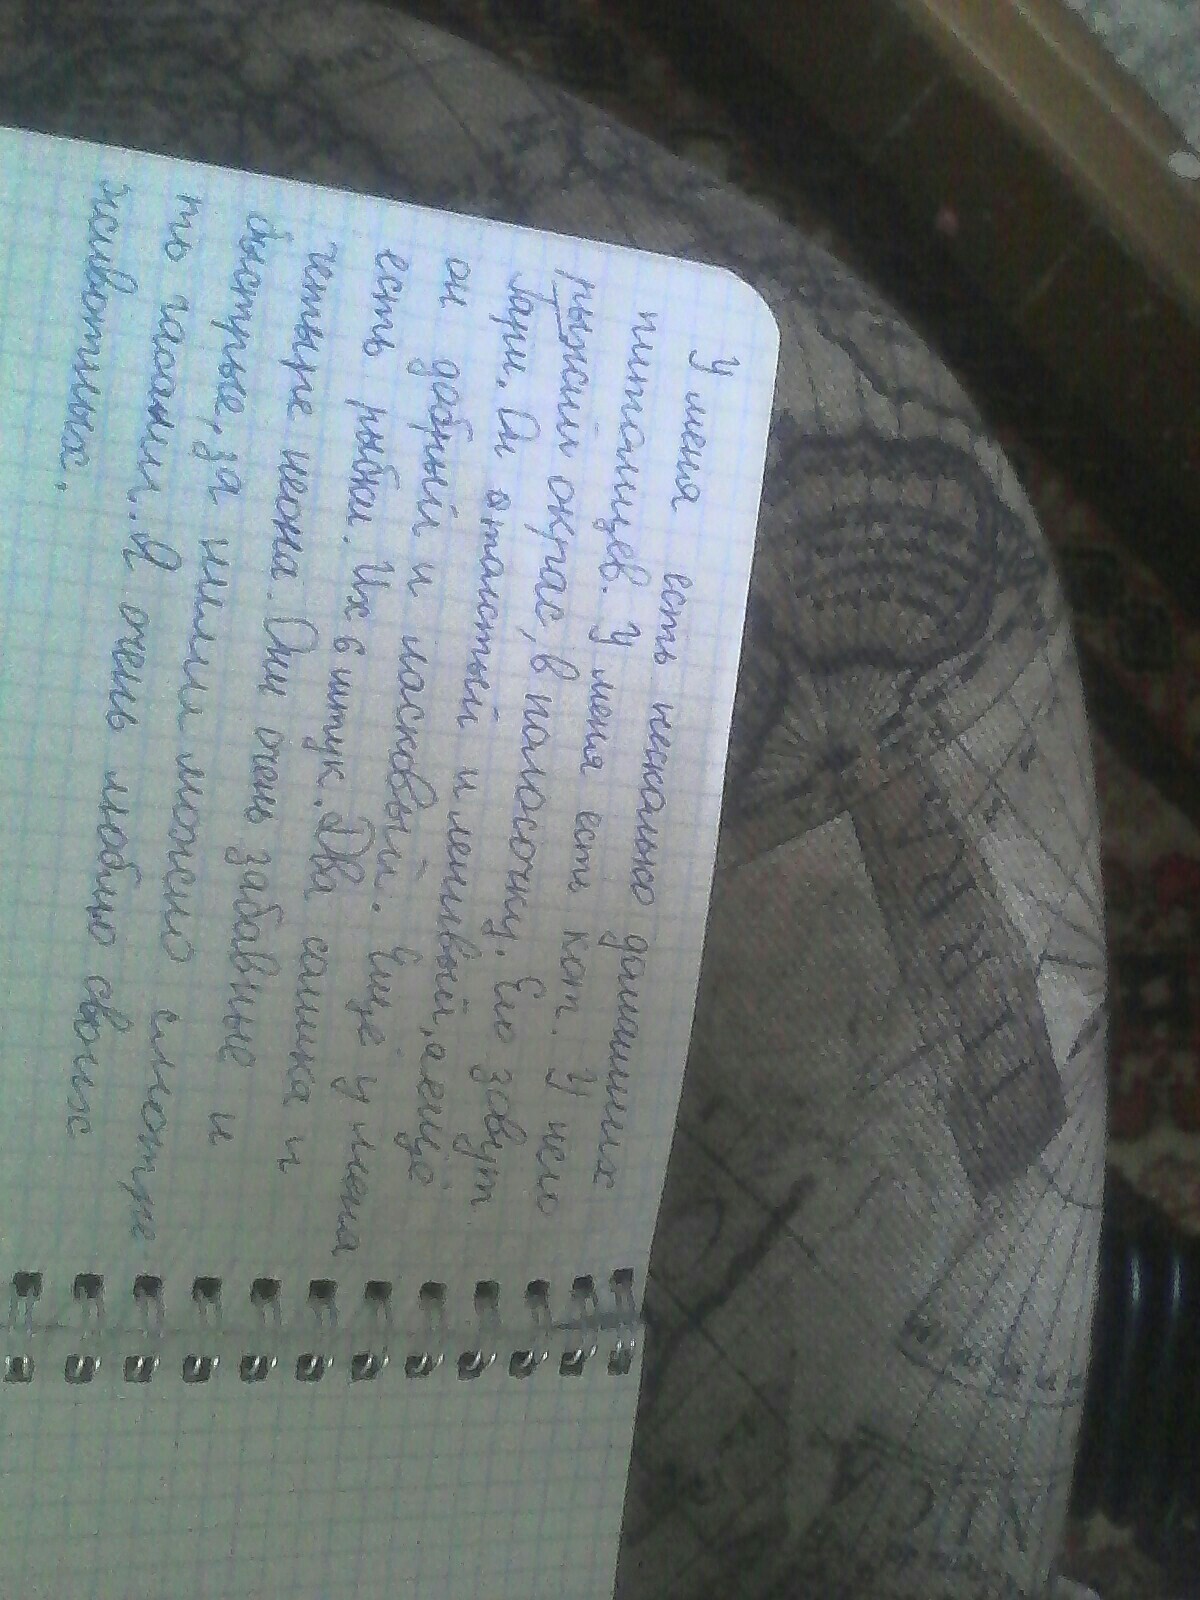 У меня есть несколько домашних
питамцев. У меня есть кот. У него
рыжий окрас, в полосочку. Его зовут
Гарри. Он толстый и ленивый, а ещё
он добрый и ласковый. Ещё у меня
есть рыбки. Их 6 штук. Два сомика и
четыре неона. Они очень забавные и
быстрые, за ними можно смотре
ть часами. Я очень люблю своих
животных.